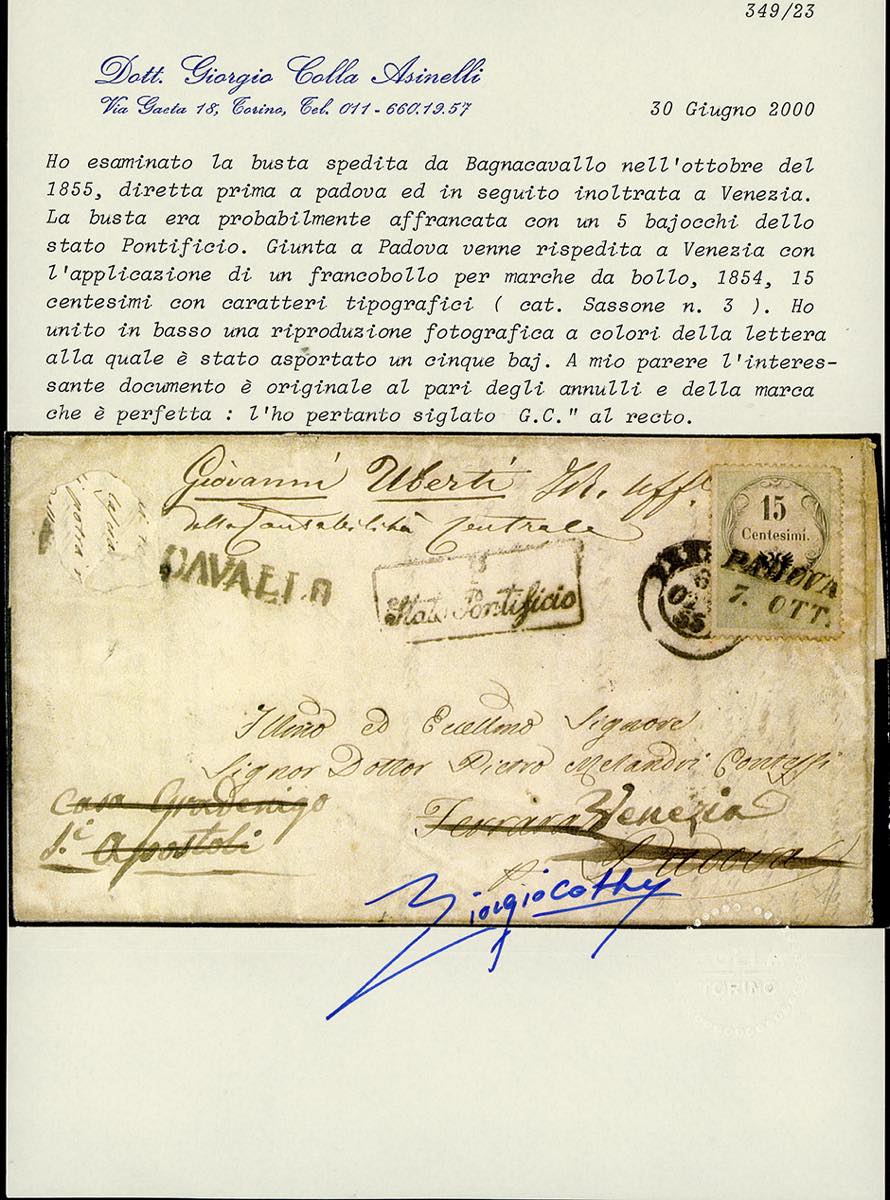 349/23
Dott. Giorgio Colla Asinelli
Via Gaeta 18, Torino, Tel. 011-660.19.57
30 Giugno 2000
Ho esaminato la busta spedita da Bagnacavallo nell'ottobre del
1855, diretta prima a padova ed in seguito inoltrata a Venezia.
La busta era probabilmente affrancata con un 5 bajocchi dello
stato Pontificio. Giunta a Padova venne rispedita a Venezia con
l'applicazione di un francobollo per marche da bollo, 1854, 15
centesimi con caratteri tipografici ( cat. Sassone n. 3 ). Ho
unito in basso una riproduzione fotografica a colori della lettera
alla quale è stato asportato un cinque baj. A mio parere l'interes-
sante documento è originale al pari degli annulli e della marca
che è perfetta : l'ho pertanto siglato G.C." al recto.
Giovanni Uberti
della Contabilità Centrale
15
Centesimi.
CAVALLO
Stato Pontificio
6
55
PADOVA
7. OTT.
Illmo ed Eccellmo Signore
Signor Dottor Pietro Melandri Contessi
Casa Gradenigo
Ferrara Venezia
S.i Apostoli
Padova
TORINO